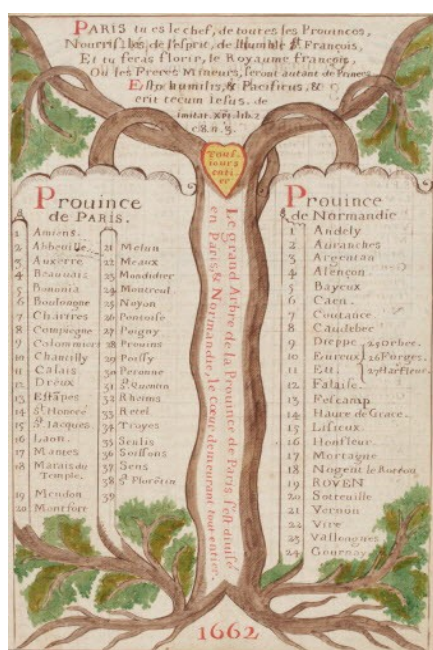 PARIS tu es le chef, de toutes les Prouinces,
Nourris-les de l'esprit, de l'humble St François,
Et tu feras florir, le Royaume françois,
Ou les Freres Mineurs, seront autant de Princes
Esto humilis, & Pacificus, &
erit tecum Iesus. de
imitat. Xpi. lib. 2
c. 8. n. 3.
Tous
iours
enti
er
Prouince
de PARIS.
1 Amiens.
2 Abbeuille
3 Auxerre
4 Beauuais
5 Bononia
6 Boulongne
7 Chartres
8 Compiegne
9 Colommiers
10 Chantilly
11 Calais
12 Dreux
13 Estapes
14 St Honoré
15 St Jacques
16 Laon.
17 Mantes
18 Marais du
Temple.
19 Meudon
20 Montfort
21 Melun
22 Meaux
23 Mondidier
24 Montreul
25 Noyon
26 Pontoise
27 Poigny
28 Prouins
29 Poissy
30 Peronne
31 St Quentin
32 Rheims
33 Retel
34 Troyes
35 Senlis
36 Soissons
37 Sens
38 St Florētin
39
Le grand Arbre de la Prouince de Paris, s'est diuisé
en Paris, & Normandie, le Cœur demeurant tout entier.
Prouince
de Normandie
1 Andely
2 Auranches
3 Argentan
4 Alençon
5 Bayeux
6 Caen
7 Coutance
8 Caudebec
9 Dieppe
10 Eureux
11 Eu.
12 Falaise.
13 Fescamp
14 Haure de Grace.
15 Lisieux
16 Honfleur
17 Mortagne
18 Nogent le Rotrou
19 ROVEN
20 Sotteuille
21 Vernon
22 Vire
23 Vallongnes
24 Gournay
25 Orbec.
26 Forges.
27 Harfleur.
1662